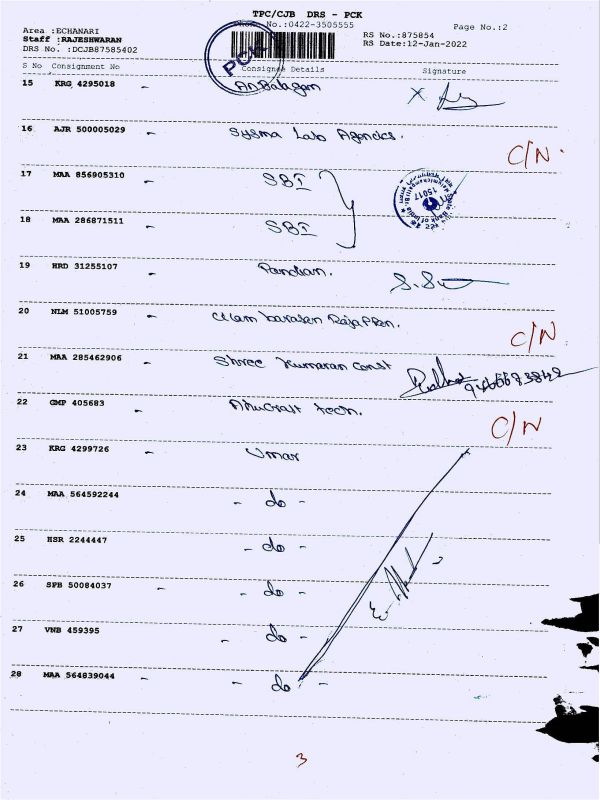 TPC/CJB DRS - PCK
Phone No.:0422-3505555
Page No.:2
Area :ECHANARI
Staff :RAJESHWARAN
DRS No. :DCJB87585402
RS No.:875854
RS Date:12-Jan-2022
PCK
S No Consignment No Consignee Details Signature
15 KRG 4295018 -
16 AJR 500005029 - Sysma Lab Agencies. C/N.
17 MAA 856905310 - SBI
15017
18 MAA 286871511 - SBI
19 HRD 31255107 - Pandian.
20 NLM 51005759 - C/N
21 MAA 285462906 - Shree Kumaran Const
22 GMP 405683 - tech. C/N
23 KRG 4299726 - Umar
24 MAA 564592244 - do -
25 HSR 2244447 - do -
26 SPB 50084037 - - do -
27 VNB 459395 - do -
28 MAA 564839044 - - do -
3